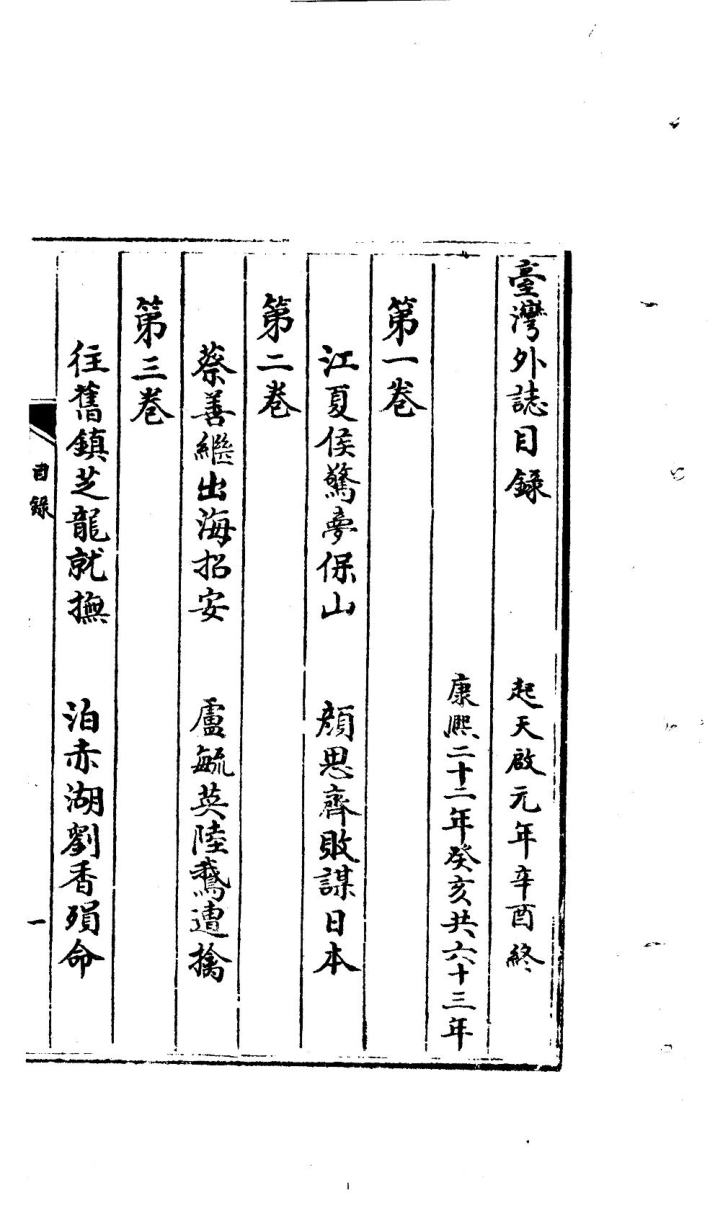 臺灣外誌目録 起天啟元年辛酉終
康熙二十二年癸亥共六十三年
第一卷
江夏侯驚夢保山 顏思齊敗謀日本
第二卷
蔡善繼出海招安 盧毓英陸鵞遭擒
第三卷
往舊鎮芝龍就撫 泊赤湖劉香殞命
目録
一